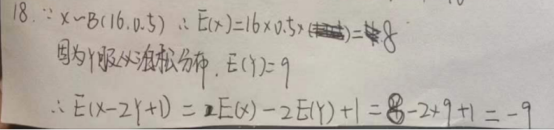 18. ∵ X~B(16,0.5) ∴ E(X)=16×0.5=8
因为Y服从泊松分布, E(Y)=9
∴ E(X-2Y+1) = E(X)-2E(Y)+1 = 8-2×9+1 = -9